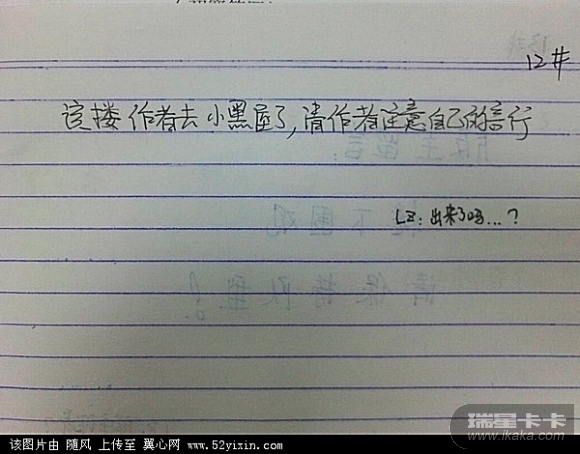 12#
该楼作者去小黑屋了,请作者注意自己的言行
LZ:出来了吗...?
瑞星卡卡
www.ikaka.com
该图片由 随风 上传至 翼心网 www.52yixin.com